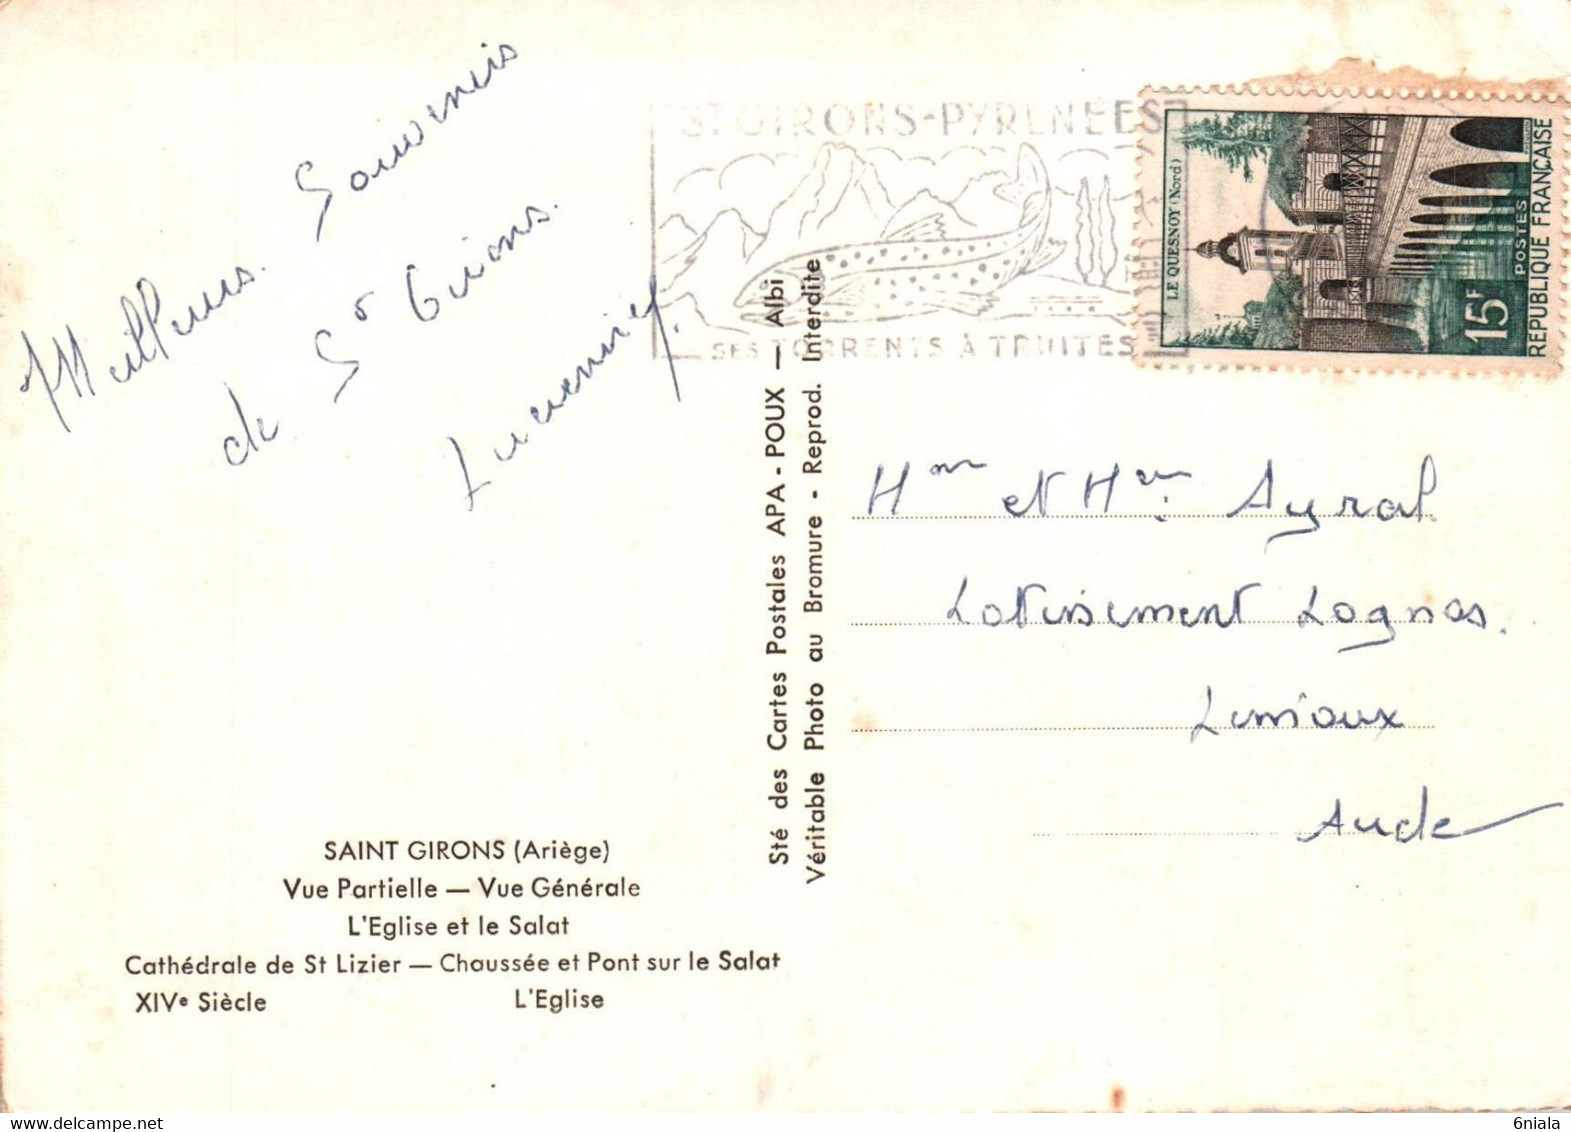 Meilleurs Souvenirs
de St Girons.
ST GIRONS-PYRENEES
SES TORRENTS A TRUITES
LE QUESNOY (Nord)
15F
POSTES
REPUBLIQUE FRANÇAISE
Sté des Cartes Postales APA - POUX — Albi
Véritable Photo au Bromure - Reprod. Interdite
et Ayral
Lotissement Lognos.
Limoux
Aude
SAINT GIRONS (Ariège)
Vue Partielle — Vue Générale
L'Eglise et le Salat
Cathédrale de St Lizier — Chaussée et Pont sur le Salat
XIVe Siècle L'Eglise
6niala